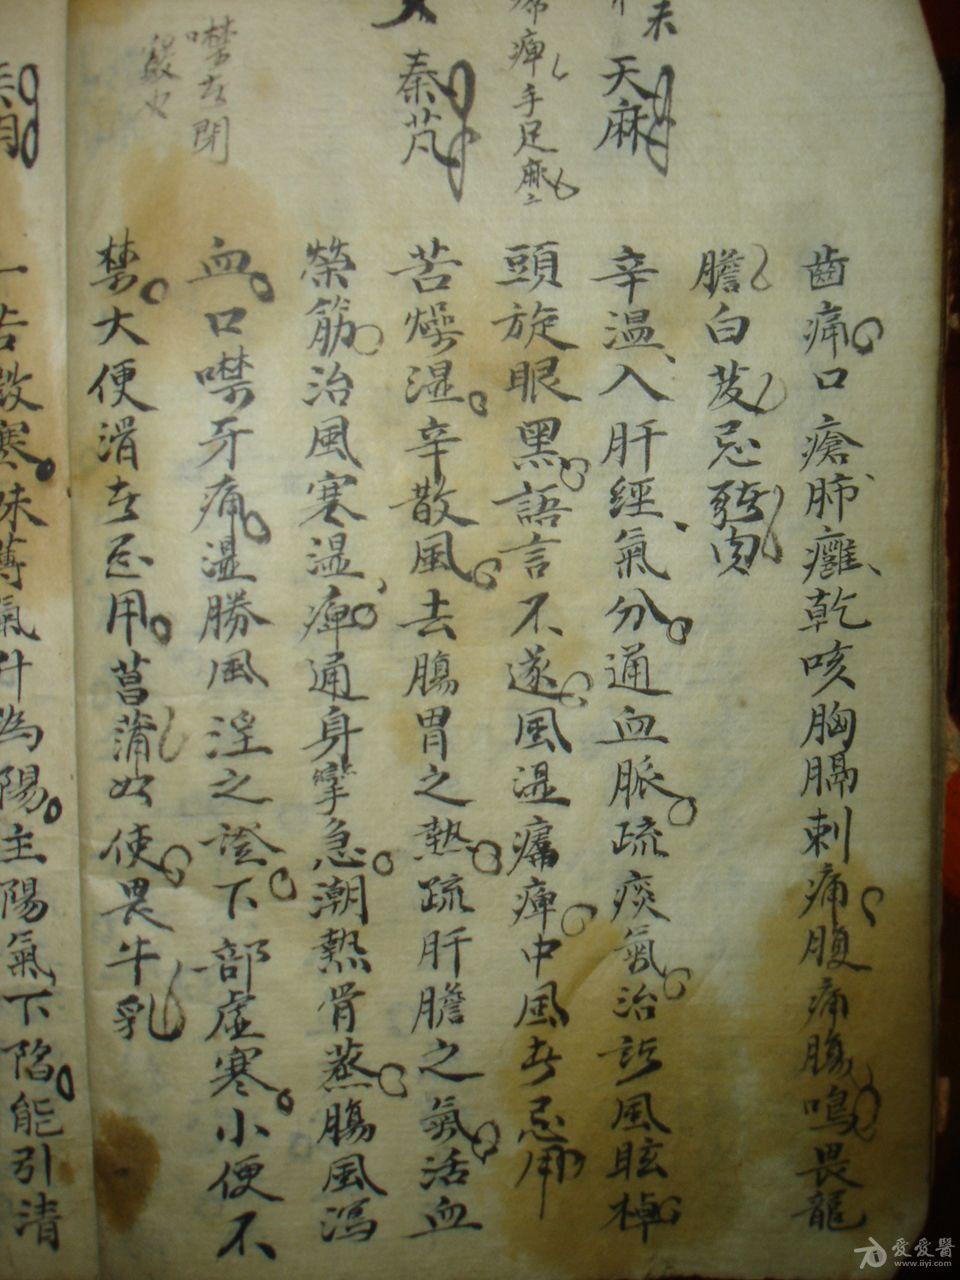 齒痛口瘡肺癰乾咳胸膈刺痛腹痛腸鳴畏龍
膽白芨忌豬肉
天麻
辛温入肝經氣分通血脈疏痰氣治諸風眩掉
痹手足麻
頭旋眼黑語言不遂風湿癘痺中風者忌用
秦艽
苦燥湿辛散風去腸胃之熱疏肝膽之氣活血
榮筋治風寒湿痺通身攣急潮熱骨蒸腸風瀉
噤者閉
血口噤牙痛湿勝風淫之證下部虚寒小便不
禁大便滑者忌用菖蒲為使畏牛乳
柴胡
一苦微寒味薄氣升為陽主陽氣下陷能引清
爱爱醫
www.iiyi.com